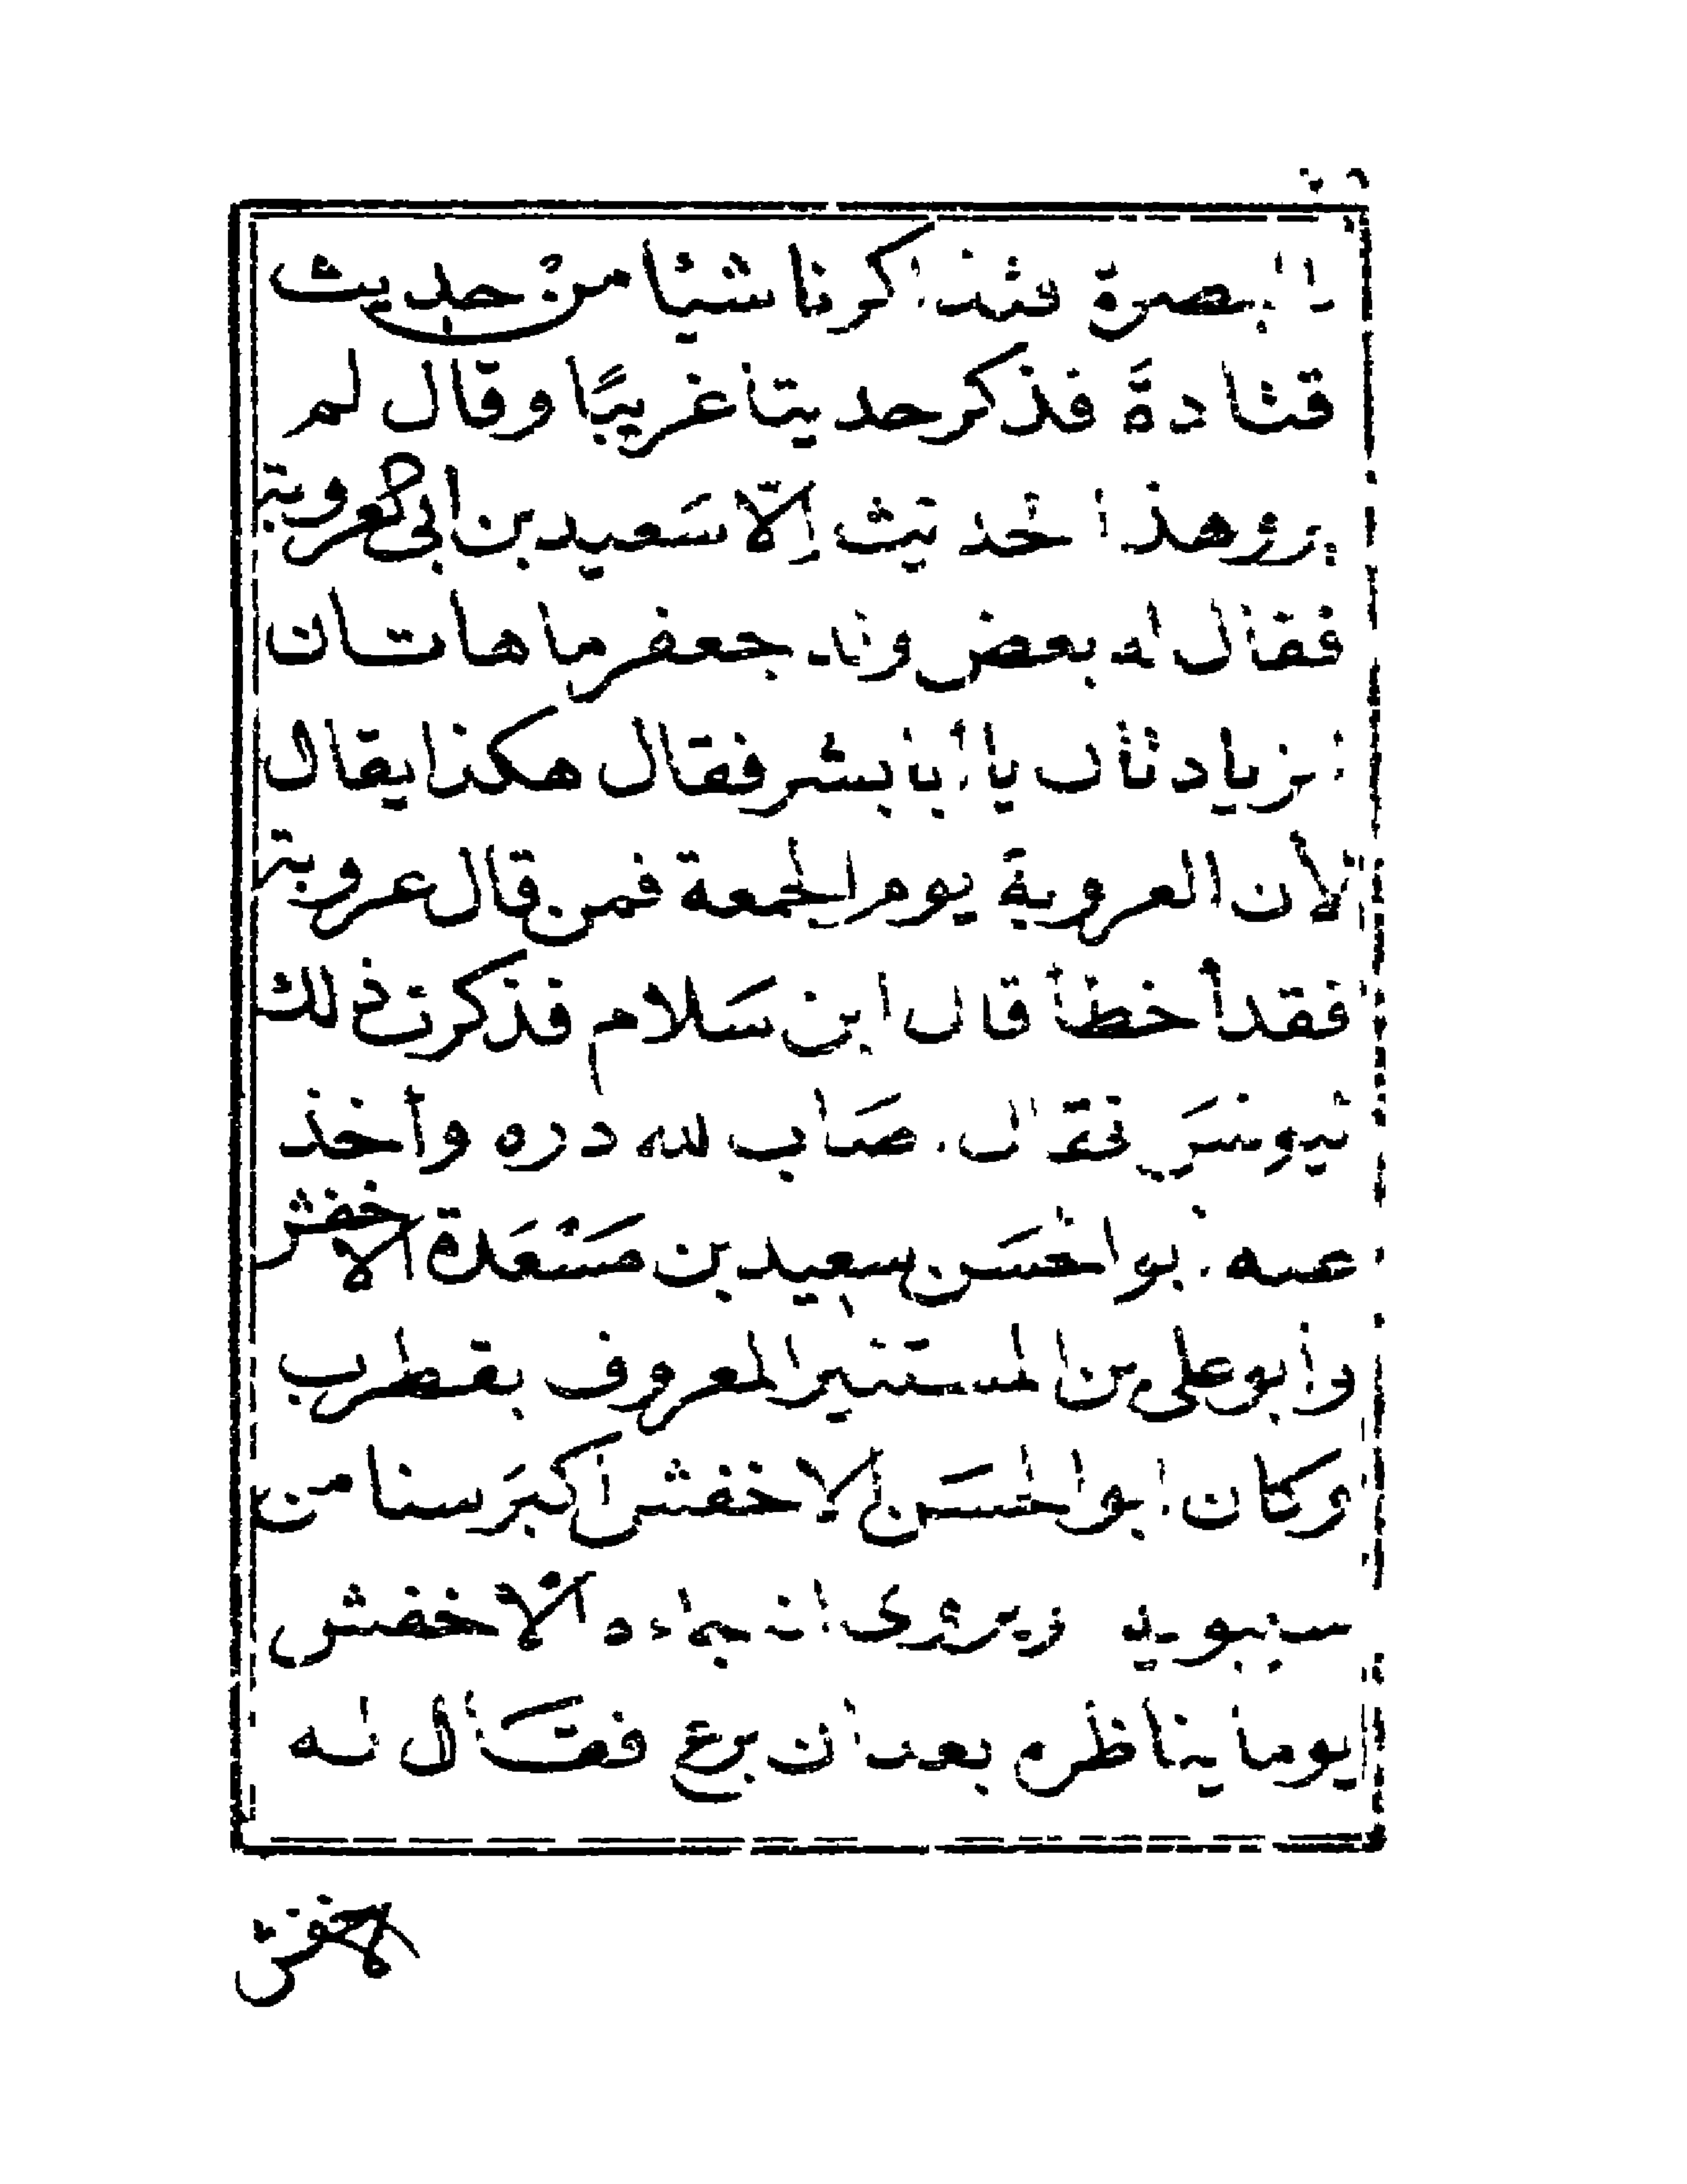 بالبصرة فتذاكرنا شيئا من حديث
قتادة فذكر حديثا غريبًا وقال لم
يرو هذا الحديث إلّا سَعيد بن ابى العروبة
فقال له بعض ولد جعفر ما هاتان
الزيادتان يا أبا بشر فقال هكذا يقال
لأن العروبة يوم الجمعة فمن قال عروبة
فقد أخطأ قال ابن سَلام فذكرت ذلك
ليونسَ فقال أصَاب لله دره وأخذ
عنه أبو الحسَن سعيد بن مَسْعَدة الاخفش
وأبو على بن المستنير المعروف بقطرب
وكان ابو الحسَن الاخفش أكبَر سنا من
سيبويه ويروى انه جاءه الاخفش
يوما يناظره بعد ان برع فقال له
الاخفش